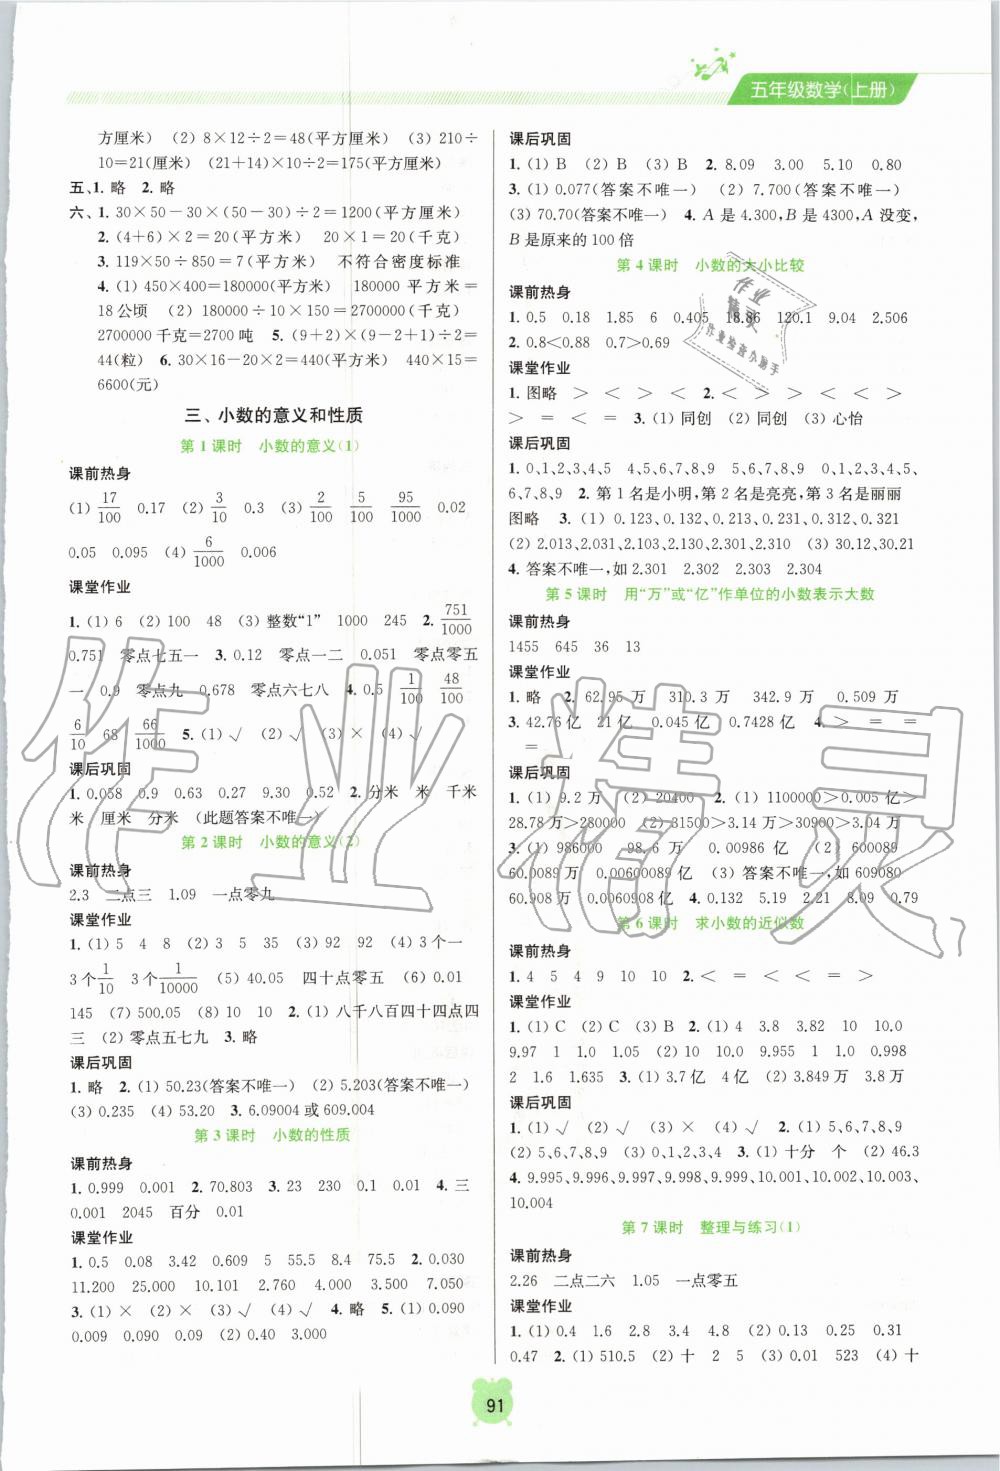 五年级数学(上册)
方厘米) (2) 8×12÷2=48(平方厘米) (3) 210÷
10=21(厘米) (21+14)×10÷2=175(平方厘米)
五、1. 略 2. 略
六、1. 30×50-30×(50-30)÷2=1200(平方厘米)
2. (4+6)×2=20(平方米) 20×1=20(千克)
3. 119×50÷850=7(平方米) 不符合密度标准
4. (1) 450×400=180000(平方米) 180000 平方米=
18 公顷 (2) 180000÷10×150=2700000(千克)
2700000 千克=2700 吨 5. (9+2)×(9-2+1)÷2=
44(粒) 6. 30×16-20×2=440(平方米) 440×15=
6600(元)
三、小数的意义和性质
第 1 课时 小数的意义(1)
课前热身
(1) 17/100 0.17 (2) 3/10 0.3 (3) 2/100 5/100 95/1000 0.02
0.05 0.095 (4) 6/1000 0.006
课堂作业
1. (1) 6 (2) 100 48 (3) 整数“1” 1000 245 2. 751/1000
0.751 零点七五一 3. 0.12 零点一二 0.051 零点零五
一 0.9 零点九 0.678 零点六七八 4. 0.5 1/100 48/100
6/10 68 66/1000 5. (1) √ (2) √ (3) × (4) √
课后巩固
1. 0.058 0.9 0.63 0.27 9.30 0.52 2. 分米 米 千米
米 厘米 分米 (此题答案不唯一)
第 2 课时 小数的意义(2)
课前热身
2.3 二点三 1.09 一点零九
课堂作业
1. (1) 5 4 8 (2) 3 5 35 (3) 92 92 (4) 3 个一
3 个1/10 3 个1/10000 (5) 40.05 四十点零五 (6) 0.01
145 (7) 500.05 (8) 10 10 2. (1) 八千八百四十四点四
三 (2) 零点五七九 3. 略
课后巩固
1. 略 2. (1) 50.23(答案不唯一) (2) 5.203(答案不唯一)
(3) 0.235 (4) 53.20 3. 6.09004 或 609.004
第 3 课时 小数的性质
课前热身
1. 0.999 0.001 2. 70.803 3. 23 230 0.1 0.01 4. 三
0.001 2045 百分 0.01
课堂作业
1. 0.5 0.08 3.42 0.609 5 55.5 8.4 75.5 2. 0.030
11.200 25.000 10.101 2.760 4.000 3.500 7.050
3. (1) × (2) × (3) √ (4) √ 4. 略 5. (1) 0.090
0.009 0.090 0.09 (2) 0.40 3.000
课后巩固
1. (1) B (2) B (3) B 2. 8.09 3.00 5.10 0.80
3. (1) 0.077(答案不唯一) (2) 7.700(答案不唯一)
(3) 70.70(答案不唯一) 4. A 是 4.300,B 是 4300,A 没变,
B 是原来的 100 倍
第 4 课时 小数的大小比较
课前热身
1. 0.5 0.18 1.85 6 0.405 18.86 120.1 9.04 2.506
2. 0.8<0.88 0.7>0.69
课堂作业
1. 图略 > < > < 2. < > > < < >
> = < = 3. (1) 同创 (2) 同创 (3) 心怡
课后巩固
1. 0、1、2、3、4、5 4、5、6、7、8、9 5、6、7、8、9 0、1、2、3、4、5、
6、7、8、9 2. 第 1 名是小明,第 2 名是亮亮,第 3 名是丽丽
图略 3. (1) 0.123、0.132、0.213、0.231、0.312、0.321
(2) 2.013、2.031、2.103、2.130、2.301、2.310 (3) 30.12、30.21
4. 答案不唯一,如 2.301 2.302 2.303 2.304
第 5 课时 用“万”或“亿”作单位的小数表示大数
课前热身
1455 645 36 13
课堂作业
1. 略 2. 62.95 万 310.3 万 342.9 万 0.509 万
3. 42.76 亿 21 亿 0.045 亿 0.7428 亿 4. > = =
=
课后巩固
1. (1) 9.2 万 (2) 20400 2. (1) 1100000>0.005 亿>
28.78 万>280000 (2) 31500>3.14 万>30900>3.04 万
3. (1) 986000 98.6 万 0.00986 亿 (2) 600089
60.0089 万 0.00600089 亿 (3) 答案不唯一,如 609080
60.908 万 0.0060908 亿 4. 0.95 5.19 2.21 8.09 0.79
第 6 课时 求小数的近似数
课前热身
1. 4 5 4 9 10 10 2. < = < < = >
课堂作业
1. (1) C (2) C (3) B 2. (1) 4 3.8 3.82 10 10.0
9.97 1 1.0 1.05 (2) 10 10.0 9.955 1 1.0 0.998
2 1.6 1.635 3. (1) 3.7 亿 4 亿 (2) 3.849 万 3.8 万
课后巩固
1. (1) √ (2) √ (3) × (4) √ 2. (1) 5、6、7、8、9
(2) 5、6、7、8、9 (3) 0、1、2、3、4 3. (1) 十分 个 (2) 46.3
4. 9.995、9.996、9.997、9.998、9.999、10.001、10.002、10.003、
10.004
第 7 课时 整理与练习(1)
课前热身
2.26 二点二六 1.05 一点零五
课堂作业
1. (1) 0.4 1.6 2.8 3.4 4.8 (2) 0.13 0.25 0.31
0.47 2. (1) 510.5 (2) 十 2 5 (3) 0.01 523 (4) 十
91
作业精灵